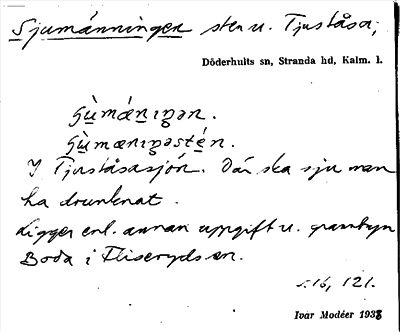 Sjumänningen sten u. Tjuståsa;
Döderhults sn, Stranda hd, Kalm. l.
ʃù̱mǽnɪŋən.
ʃù̱mænɪŋəstén.
I Tjuståsasjön. Där ska sju man
ha drunknat.
Ligger enl. annan uppgift u. grannbyn
Boda i Fliseryds sn.
s. 16, 121.
Ivar Modéer 1933